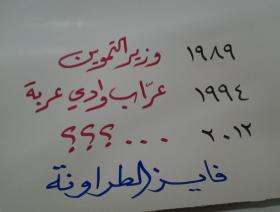 ١٩٨٩ وزير التموين
١٩٩٤ عرّاب وادي عربة
٢٠١٢ ...؟؟؟
فايز الطراونة